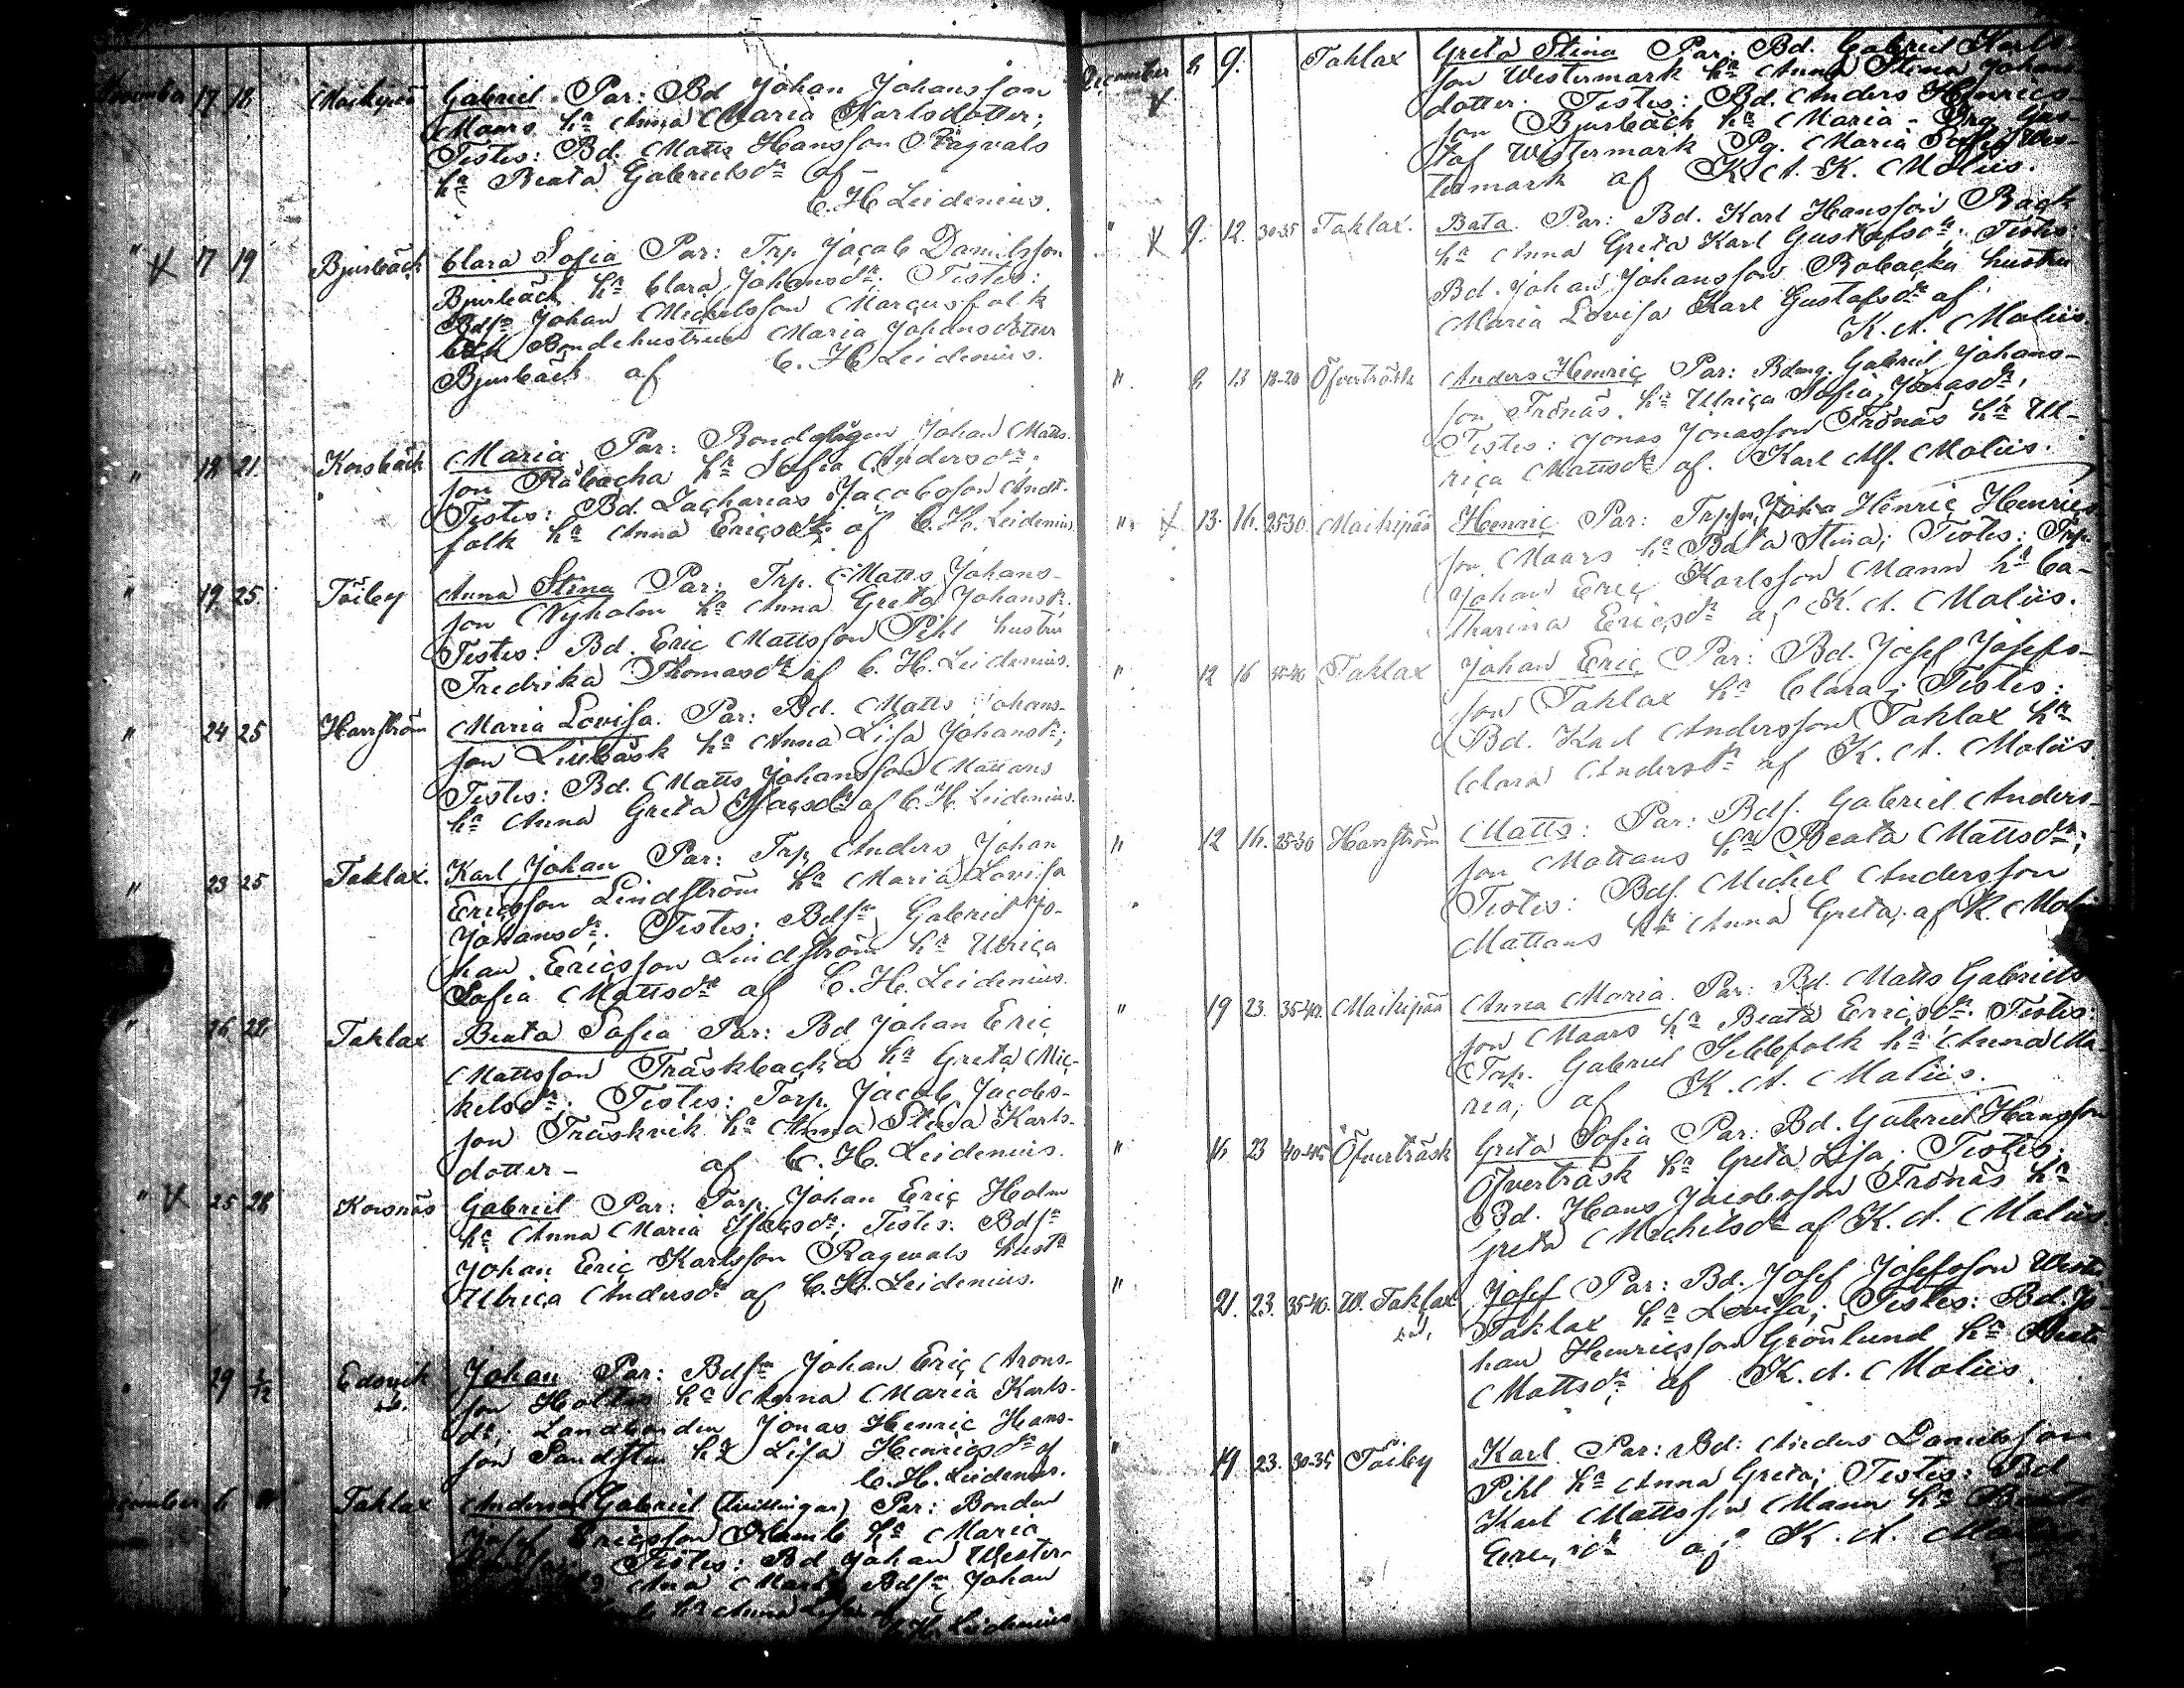 November 17 18 Maikipää Gabriel. Par: Bd Johan Johansson
Maars hn Anna Maria Karlsdotter;
Testes: Bd. Matts Hansson Rågvals
hn Beata Gabrielsdr af –
C. H. Leidenius.
" 17 19 Bjurbäck Clara Sofia Par: Trp. Jacob Danielsson
Bjurbäck hn Clara Johansdr; Testes:
Bdsn Johan Michelsson Marcusfolk
Och Bondehustrun Maria Johansdotter
Bjurbäck af C. H. Leidenius.
" 18 21. Korsbäck Maria Par: Bondedrägen Johan Matts-
son Råbacka hn Sofia Andersdr.
Testes: Bd. Zacharias Jacobsson
folk hn Anna Ericsdr af C. H. Leidenius.
" 19. 25. Töiby Anna Stina Par: Trp. Matts Johans-
son Nyholm hn Anna Greta Johansdr.
Testes: Bd. Eric Mattsson Pihl hustru
Fredrika Thomasdr af C. H. Leidenius.
" 24 25 Harrström Maria Lovisa. Par: Bd. Matts Johans-
son Lillbäck hn Anna Lisa Johansdr;
Testes: Bd. Matts Johansson Mattans
hn Anna Greta Isacsdr af C. H. Leidenius.
" 23 25 Taklax. Karl Johan Par: Trp. Anders Johan
Ericsson Lindström hn Maria Lovisa
Johansdr. Testes: Bdsn Gabriel Jo-
han Ericsson Lindström hn Ulrica
Sofia Mattsdr af C. H. Leidenius.
" 26 28. Taklax Beata Sofia Par: Bd Johan Eric
Mattsson Träskbacka hn Greta Mic-
kelsdr. Testes: Torp. Jacob Jacobs-
son Träskvik hn Anna Stina Karls-
dotter – af C. H. Leidenius.
" 25 28 Korsnäs Gabriel Par: Torp. Johan Eric Holm
hn Anna Maria Isacsdr; Testes: Bdsn
Johan Eric Karlsson Ragvals hustr
Ulrica Andersdr af C. H. Leidenius.
29 2/12 Edsvik Johan Par: Bdsn Johan Eric Arons-
son Holtus hn Anna Maria Karls-
dr; Landbonden Jonas Henric Hans-
son Sandsten hn Lisa Henricsdr af
C. H. Leidenius.
December 6 Taklax Anders Gabriel (tvillingar) Par: Bonden
Josef Ericsson Klamb hn Maria
Testes: Bd Johan Wester-
Bdsn Johan
hn Anna
C. H. Leidenius
December 8 9. Taklax Greta Stina Par: Bd. Gabriel Karls-
son Westermark hn Anna Stina Johans-
dotter. Testes: Bd. Anders Henrics-
son Bjurbäck hn Maria – Drg Gus-
taf Westermark Pg. Maria Sofia Wes-
termark af K. A. K. Molin.
" 9. 12. 30-35 Taklax. Beata. Par: Bd. Karl Hansson Back
hn Anna Greta Karl Gustafsdr; Testes:
Bd. Johan Johansson Råbacka hustru
Maria Lovisa Karl Gustafsdr af
K. A. Molin.
" 8 13 18-20 Öfverträsk Anders Henric Par: Bdmg. Gabriel Johans-
son Frönäs. hn Ulrica Sofia Jonasdr,
Testes: Jonas Jonasson Frönäs hn Ul-
rica Mattsdr af. Karl Alf. Molin.
" 13. 16. 25-30. Maikipää Henric Par: Trpsn Johan Henric Henrics-
son Maars hn Beata Stina; Testes; Trp.
Johan Eric Karlsson Mann hn Ca-
tharina Ericsdr af K. A. Molin.
" 12 16 35-40 Taklax Johan Eric Par: Bd. Josef Josefs-
son Taklax hn Clara; Testes:
Bd. Karl Andersson Taklax hn
Clara Andersdr af K. A. Molin
" 12 16. 25-30 Harrström Matts: Par: Bdf. Gabriel Anders-
son Mattans hn Beata Mattsdr;
Testes: Bdf. Michel Andersson
Mattans hn Anna Greta; af K. Molin
" 19 23. 35-40. Maikipää Anna Maria. Par: Bd. Matts Gabriels-
son Maars hn Beata Ericsdr. Testes:
Torp. Gabriel Sillfolk hn Anna Ma-
ria; af K. A. Molin.
" 16 23 40-45 Öfverträsk Greta Sofia Par: Bd. Gabriel Hansson
Öfverträsk hn Greta Lisa; Testes;
Bd. Hans Jacobsson Frönäs hn
Greta Michelsdr af K. A. Molin.
" 21. 23. 35-40. W. Taklax Josef Par: Bd. Josef Josefsson West.
Taklax hn Lovisa; Testes: Bd. Jo-
han Henricsson Grönlund hn Beata
Mattsdr; af K. A. Molin.
" 19 23. 30-35 Töiby Karl. Par: Bd: Anders Danielsson
Pihl hn Anna Greta; Testes: Bd
Karl Mattsson Mann hn Beata
Ericsdr af K. A. Molin